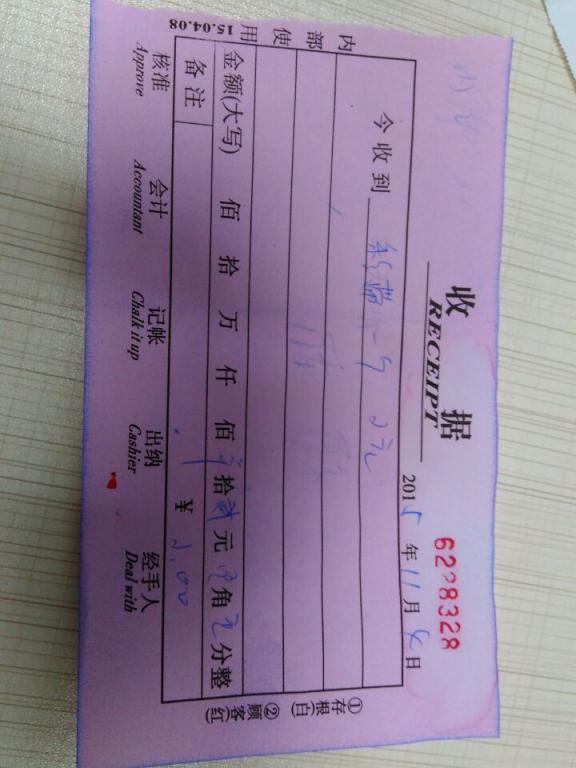 收 据
RECEIPT
6228328
2015年11月 日
今收到 2元
金额(大写) 佰 拾 万 仟 佰 拾 贰 元 角 分整
备注 ¥ 2.00
核准 会计 记帐 出纳 经手人
Approve Accountant Chalk it up Cashier Deal with
①存根(白)
②顾客(红)
内部使用
15.04.08